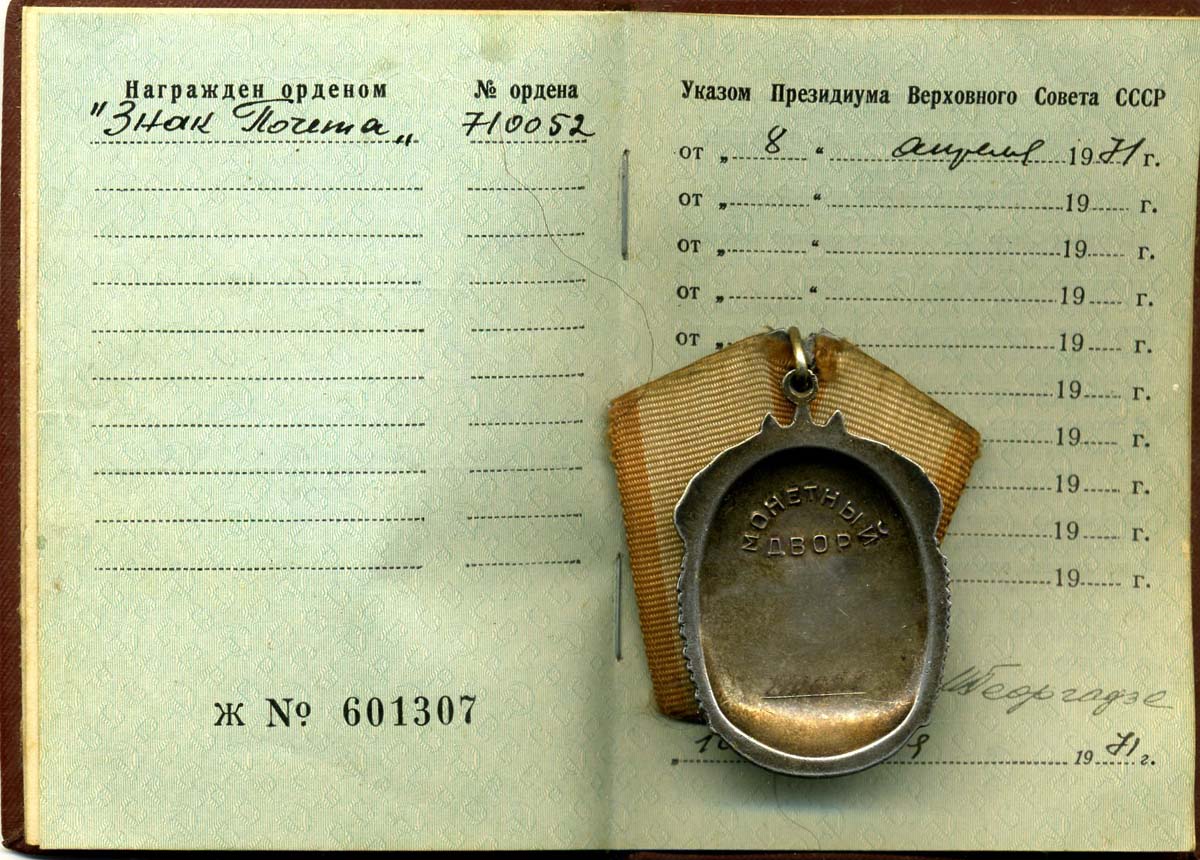 Награжден орденом
№ ордена
"Знак Почета„
710052
Ж № 601307
Указом Президиума Верховного Совета СССР
от „ 8 “ апреля 1971 г.
от „ “ 19 г.
от „ “ 19 г.
от „ “ 19 г.
от „ 19 г.
19 г.
19 г.
19 г.
19 г.
19 г.
МОНЕТНЫЙ
ДВОР
МГеоргадзе
1971 г.